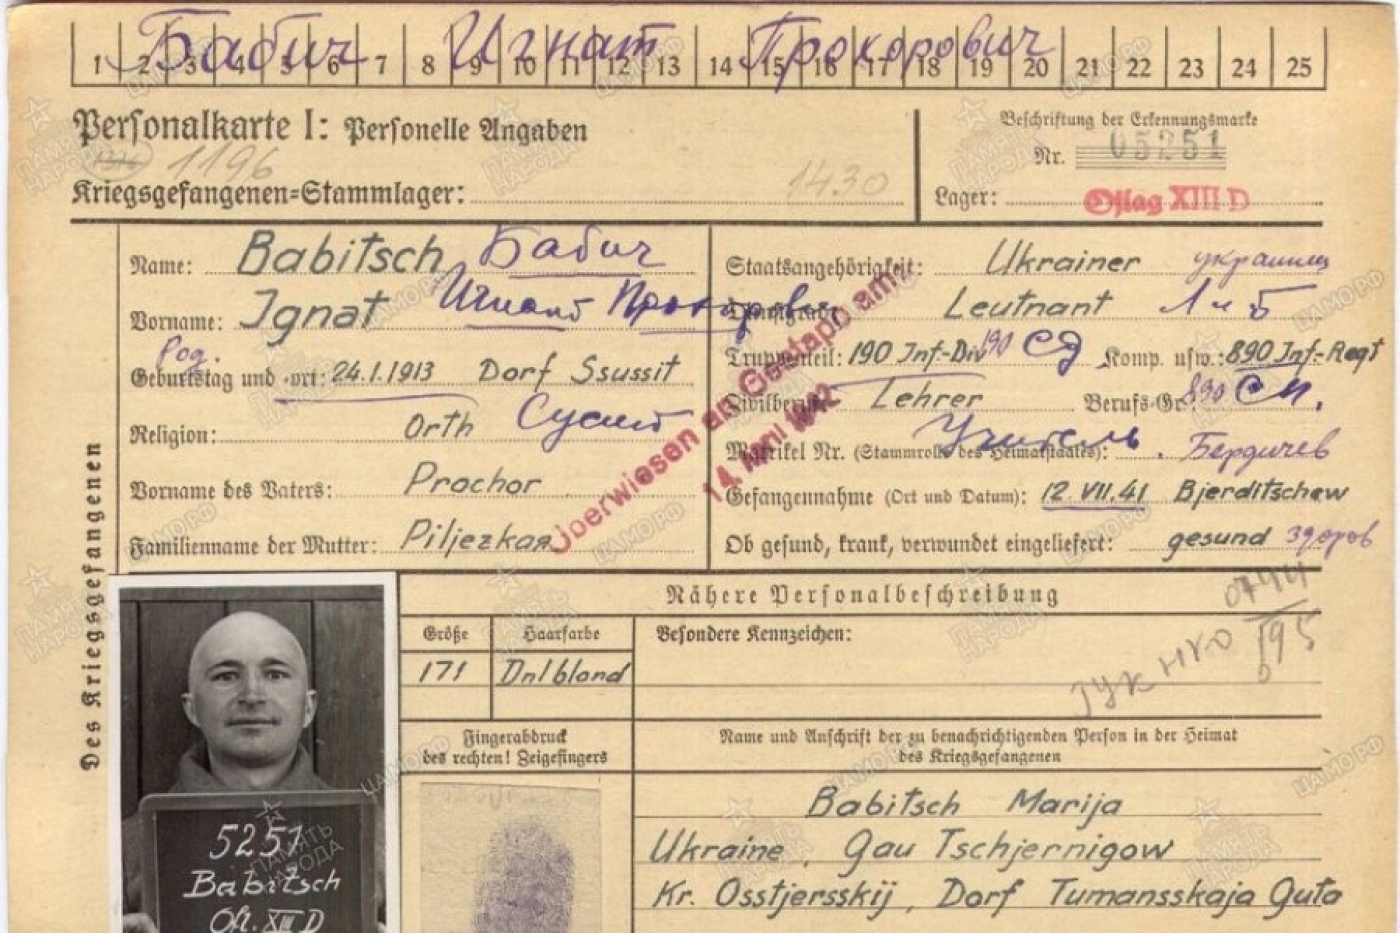 Бабич Игнат Прохорович
1 2 3 4 5 6 7 8 9 10 11 12 13 14 15 16 17 18 19 20 21 22 23 24 25
Personalkarte I: Personelle Angaben
1196
1430
Kriegsgefangenen=Stammlager:
Beschriftung der Erkennungsmarke
Nr. 05251
Lager: Oflag XIII D
Des Kriegsgefangenen
Name: Babitsch Бабич
Vorname: Ignat Игнат Прохорович
Род.
Geburtstag und =ort: 24.1.1913 Dorf Ssussit
Religion: Orth Сусит
Vorname des Vaters: Prochor
Familienname der Mutter: Piljezkaя
Überwiesen an Gestapo am:
14. April 1942
Staatsangehörigkeit: Ukrainer украинец
Dienstgrad: Leutnant Л-т
Truppenteil: 190 Inf-Div 190 СД Komp. usw.: 890 Inf-Regt
Zivilberuf: Lehrer Berufs-Gr. 890 СП.
Учитель
Matrikel Nr. (Stammrolle des Heimatstaates): Бердичев
Gefangennahme (Ort und Datum): 12.VII.41 Bjerditschew
Ob gesund, krank, verwundet eingeliefert: gesund здоров
Nähere Personalbeschreibung
Größe Haarfarbe Besondere Kennzeichen:
171 Dnlblond
Fingerabdruck
des rechten! Zeigefingers
Name und Anschrift der zu benachrichtigenden Person in der Heimat
des Kriegsgefangenen
Babitsch Marija
Ukraine, Gau Tschjernigow
Kr. Osstjersskij, Dorf Tumansskaja Guta
5251
Babitsch
Ofl. XIII D
ПАМЯТЬ НАРОДА
ЦАМО.РФ